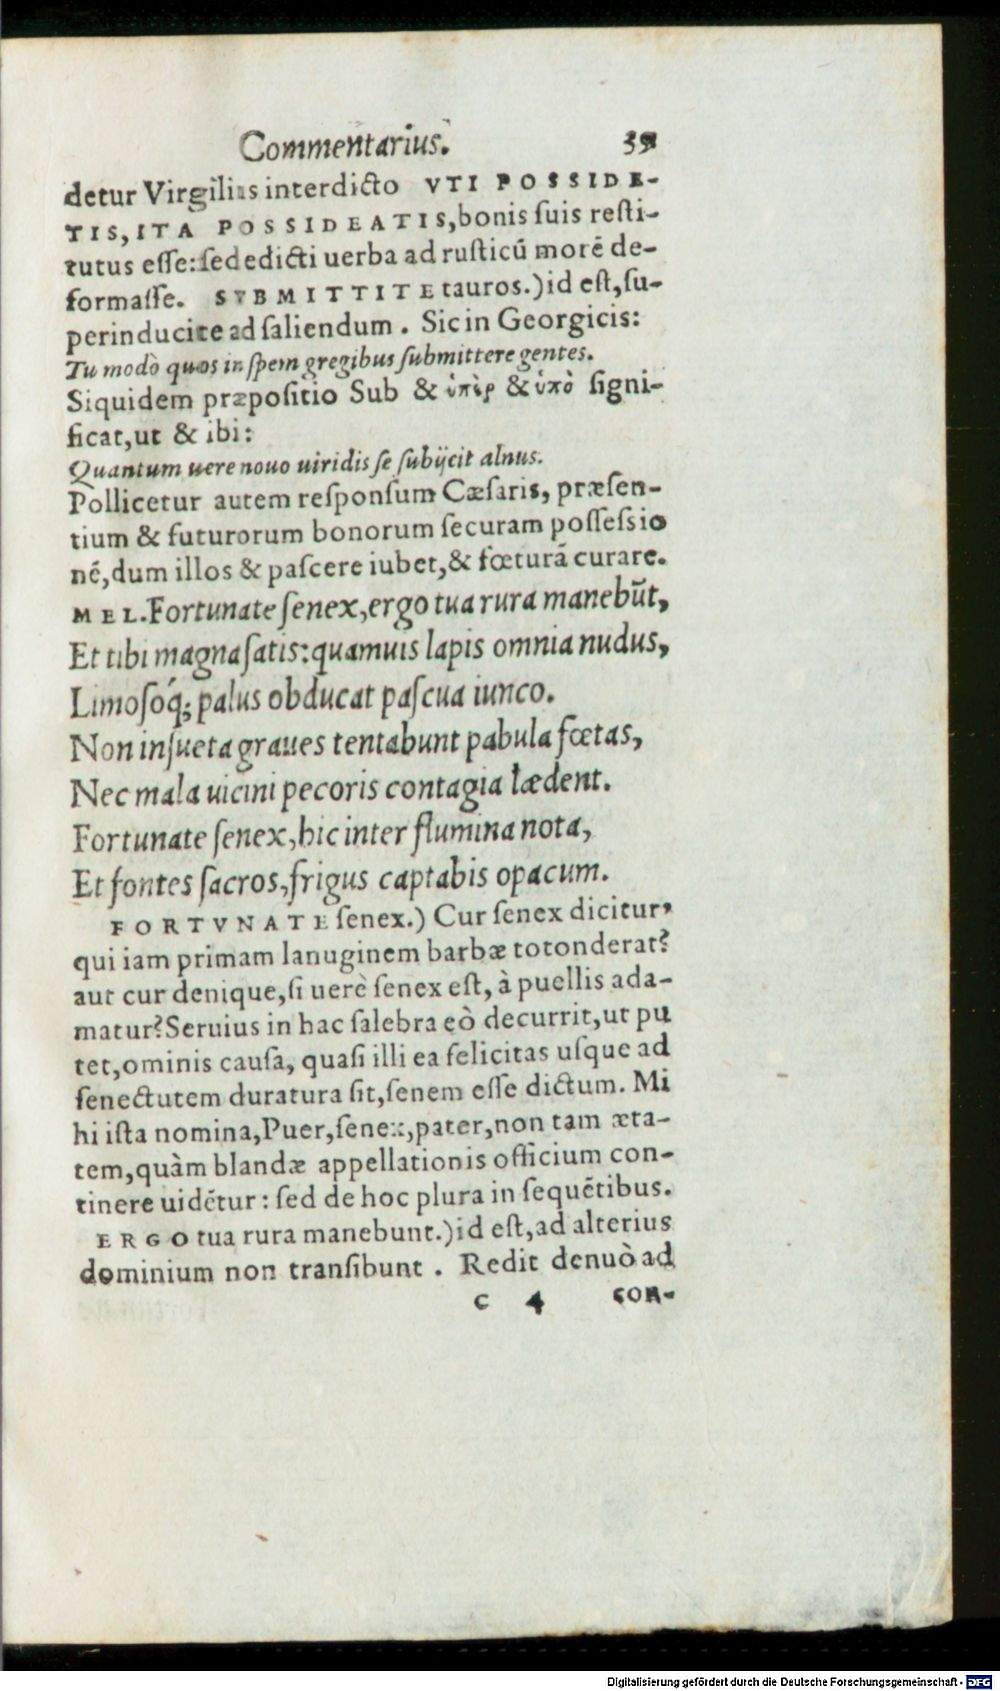 Commentarius. 39
detur Virgilius interdicto VTI POSSIDE-
TIS, ITA POSSIDEATIS, bonis ſuis reſti-
tutus eſſe: ſed edicti uerba ad ruſticū morē de-
formaſſe. SVBMITTITE tauros.) id eſt, ſu-
perinducite ad ſaliendum. Sic in Georgicis:
Tu modò quos in ſpem gregibus ſubmittere gentes.
Siquidem præpoſitio Sub & ὑπὲρ & ὑπὸ ſigni-
ficat, ut & ibi:
Quantum uere nouo uiridis ſe ſubijcit alnus.
Pollicetur autem reſponſum Cæſaris, præſen-
tium & futurorum bonorum ſecuram poſſeſsio
nē, dum illos & paſcere iubet, & fœturā curare.
MEL. Fortunate ſenex, ergo tua rura manebūt,
Et tibi magna ſatis: quamuis lapis omnia nudus,
Limoſoq́; palus obducat paſcua iunco.
Non inſueta graues tentabunt pabula fœtas,
Nec mala uicini pecoris contagia lædent.
Fortunate ſenex, hic inter flumina nota,
Et fontes ſacros, frigus captabis opacum.
FORTVNATE ſenex.) Cur ſenex dicitur,
qui iam primam lanuginem barbæ totonderat?
aut cur denique, ſi uerè ſenex eſt, à puellis ada-
matur? Seruius in hac ſalebra eò decurrit, ut pu
tet, ominis cauſa, quaſi illi ea felicitas uſque ad
ſenectutem duratura ſit, ſenem eſſe dictum. Mi
hi iſta nomina, Puer, ſenex, pater, non tam æta-
tem, quàm blandæ appellationis officium con-
tinere uidētur: ſed de hoc plura in ſequētibus.
ERGO tua rura manebunt.) id eſt, ad alterius
dominium non tranſibunt. Redit denuò ad
c 4 con-
Digitalisierung gefördert durch die Deutsche Forschungsgemeinschaft - DFG